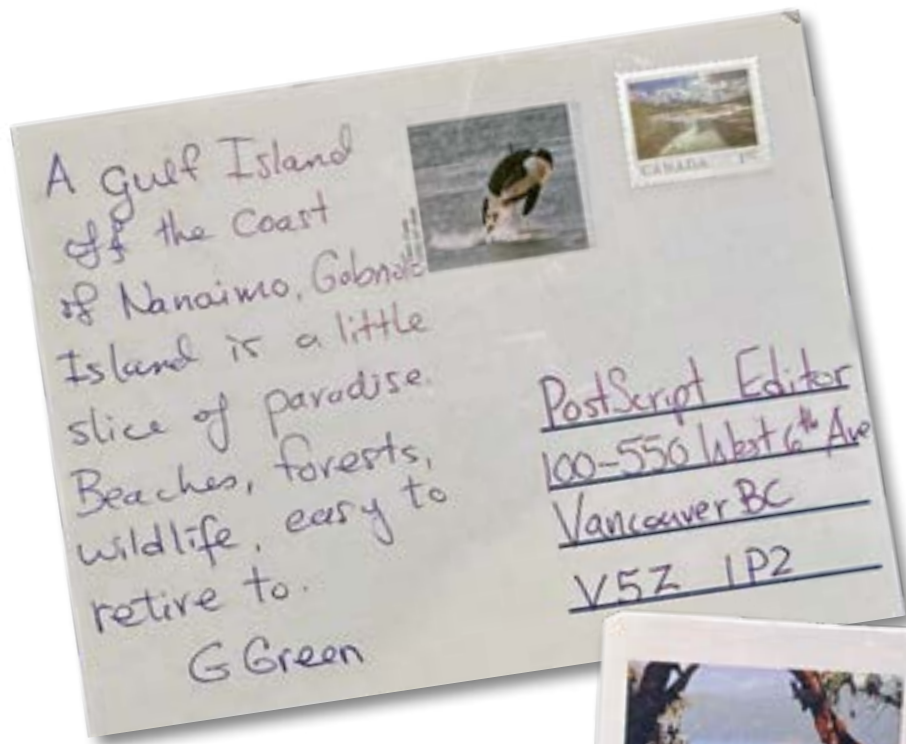 A Gulf Island
off the Coast
of Nanaimo, Gabriola
Island is a little
slice of paradise.
Beaches, forests,
wildlife, easy to
retire to.
G Green
CANADA
PostScript Editor
100-550 West 6th Ave
Vancouver BC
V5Z 1P2